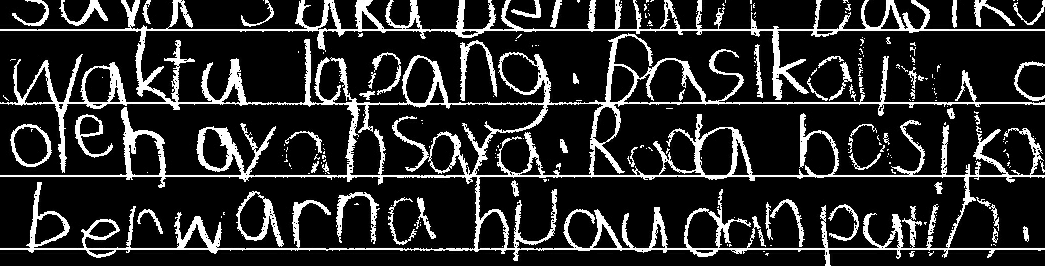 saya suka bermain basika
waktu lapang. Basikal itu d
oleh ayah saya. Roda basika
berwarna hijau dan putih.